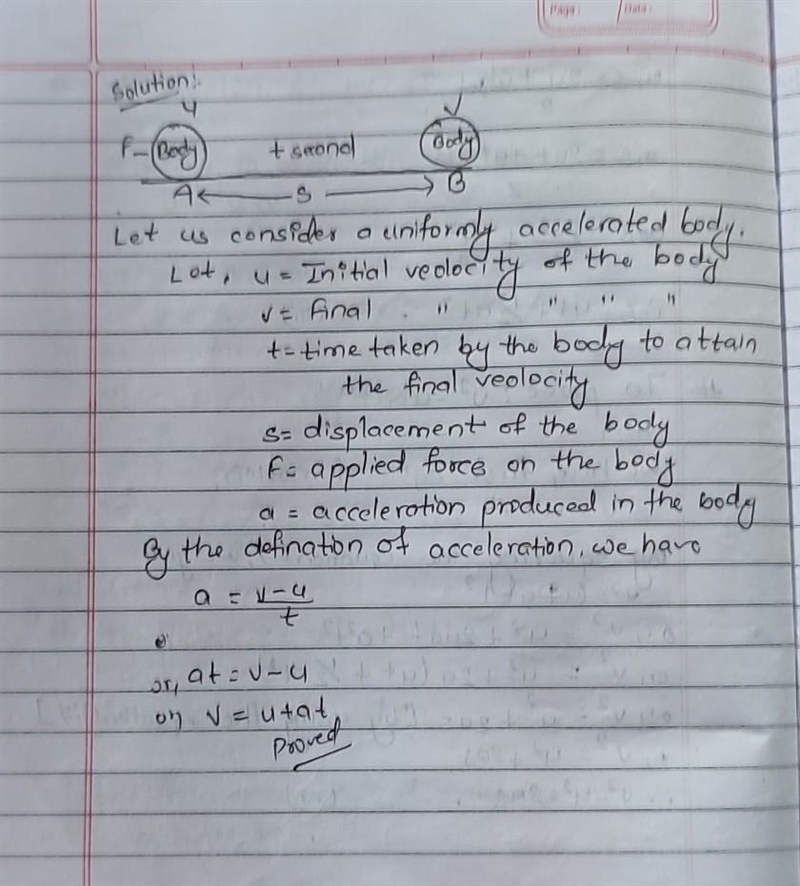 Page: Date:
Solution:
u v
F Body t second Body
A s B
Let us consider a uniformly accelerated body.
Let, u = Initial veolocity of the body
v = final " " " "
t = time taken by the body to attain
the final veolocity
s = displacement of the body
F = applied force on the body
a = acceleration produced in the body
By the defination of acceleration, we have
a = v-u/t
or, at = v-u
or, v = u+at
Proved